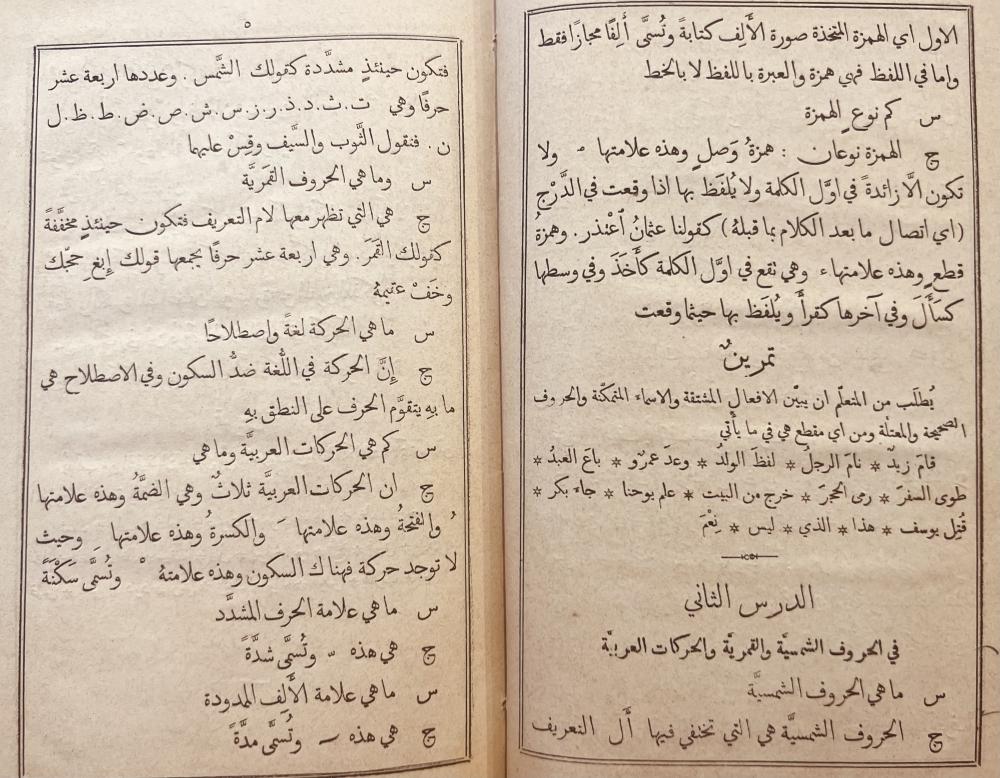 الاول اي الهمزة المتخذة صورة الأَلِف كتابةً وتُسمَّى أَلِفًا مجازًا فقط
واما في اللفظ فهي همزة والعبرة باللفظ لا بالخط
س كم نوع الهمزة
ج الهمزة نوعان : همزةُ وَصلٍ وهذه علامتها ولا
تكون الَّا زائدةً في اوَّل الكلمة ولا يُلفَظ بها اذا وقعت في الدَّرْج
(اي اتصال ما بعد الكلام بما قبلهُ) كقولنا عثمانُ ٱعْتذر . وهمزةُ
قطعٍ وهذه علامتها ء وهي تقع في اوَّل الكلمة كأَخَذَ وفي وسطها
كسَأَلَ وفي آخرها كقرأَ ويُلفَظ بها حيثما وقعت
تمرينٌ
يُطلَب من المتعلّم ان يبيّن الافعال المشتقة والاسماء المتمكّنة والحروف
الصحيحة والمعتلَّة ومن اي مقطع هي في ما يأْتي
قامَ زيدٌ * نامَ الرجلُ * لفظَ الولدُ * وعدَ عمرٌو * باعَ العبدُ *
طوى السفرَ * رمى الحجرَ * خرج من البيت * علم يوحنا * جاءَ بكر *
قُتِل يوسف * هذا * الذي * ليس * نِعْمَ
الدرس الثاني
في الحروف الشمسيَّة والقمريَّة والحركات العربيَّة
س ما هي الحروف الشمسيَّة
ج الحروف الشمسيَّة هي التي تختفي فيها أَل التعريف
٥
فتكون حينئذٍ مشدَّدة كقولك الشَّمس . وعددها اربعة عشر
حرفًا وهي ت . ث . د . ذ . ر . ز . س . ش . ص . ض . ط . ظ . ل
ن . فنقول الثَّوب والسَّيف وقِسْ عليهما
س وما هي الحروف القمَريَّة
ج هي التي تظهر معها لام التعريف فتكون حينئذٍ مخفَّفةً
كقولك القَمَر . وهي اربعة عشر حرفًا يجمعها قولك إِبغِ حجَّك
وخَفْ عقيمهُ
س ما هي الحركة لغةً واصطلاحًا
ج إِنَّ الحركة في اللُّغة ضدُّ السكون وفي الاصطلاح هي
ما بهِ يتقوَّم الحرف على النطق بهِ
س كم هي الحركات العربيَّة وما هي
ج ان الحركات العربيَّة ثلاثٌ وهي الضمَّةُ وهذه علامتها
ُ والفتحةُ وهذه علامتها َ والكسرةُ وهذه علامتها ِ وحيث
لا توجد حركة فهناك السكون وهذه علامتهُ ْ وتُسمَّى سَكْنَةً
س ما هي علامة الحرف المشدَّد
ج هي هذه ّ وتُسمَّى شدَّةً
س ما هي علامة الأَلِف الممدودة
ج هي هذه ٓ وتُسمَّى مدَّةً